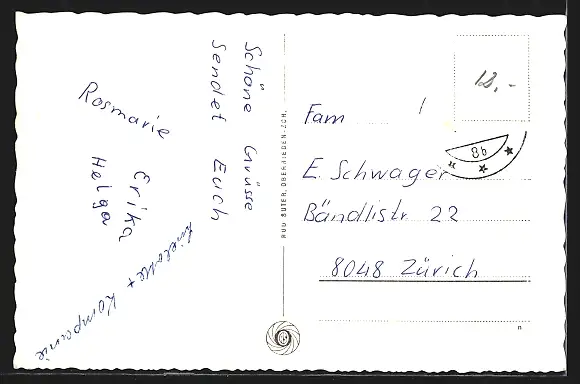 Schöne Grüsse
Sendet Euch
Rosmarie
Erika
Helga
+ Kompanie
RUD. SUTER, OBERRIEDEN-ZCH.
12,-
Fam
E. Schwager
Bändlistr. 22
8048 Zürich
8b
n